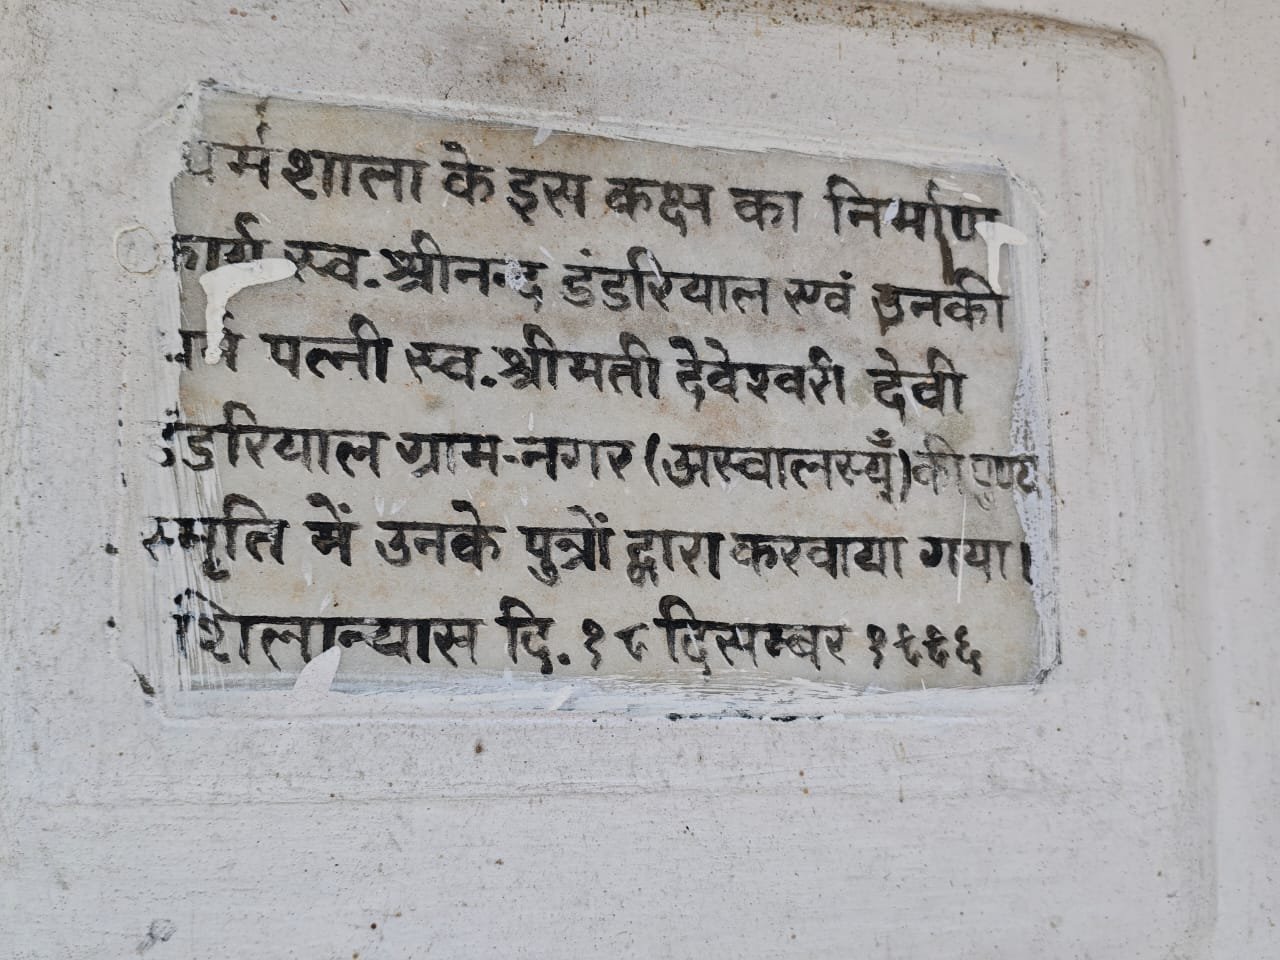 धर्मशाला के इस कक्ष का निर्माण
कार्य स्व. श्रीनन्द डंडरियाल एवं उनकी
धर्म पत्नी स्व. श्रीमती देवेश्वरी देवी
डंडरियाल ग्राम-नगर (अस्वालस्यूँ) की पुण्य
स्मृति में उनके पुत्रों द्वारा करवाया गया।
शिलान्यास दि. १८ दिसम्बर १९९६